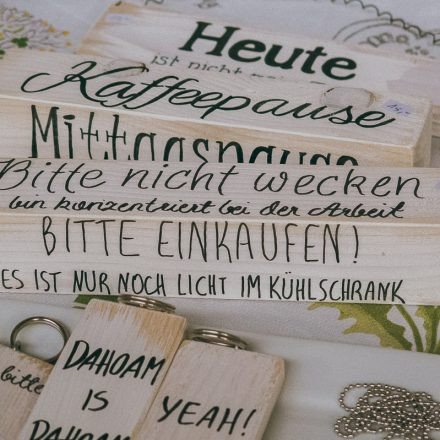 Heute
ist nicht
Kaffeepause
Mittagspause
Bitte nicht wecken
bin konzentriert bei der Arbeit
BITTE EINKAUFEN!
ES IST NUR NOCH LICHT IM KÜHLSCHRANK
bitte
DAHOAM
IS
DAHOAM
YEAH!